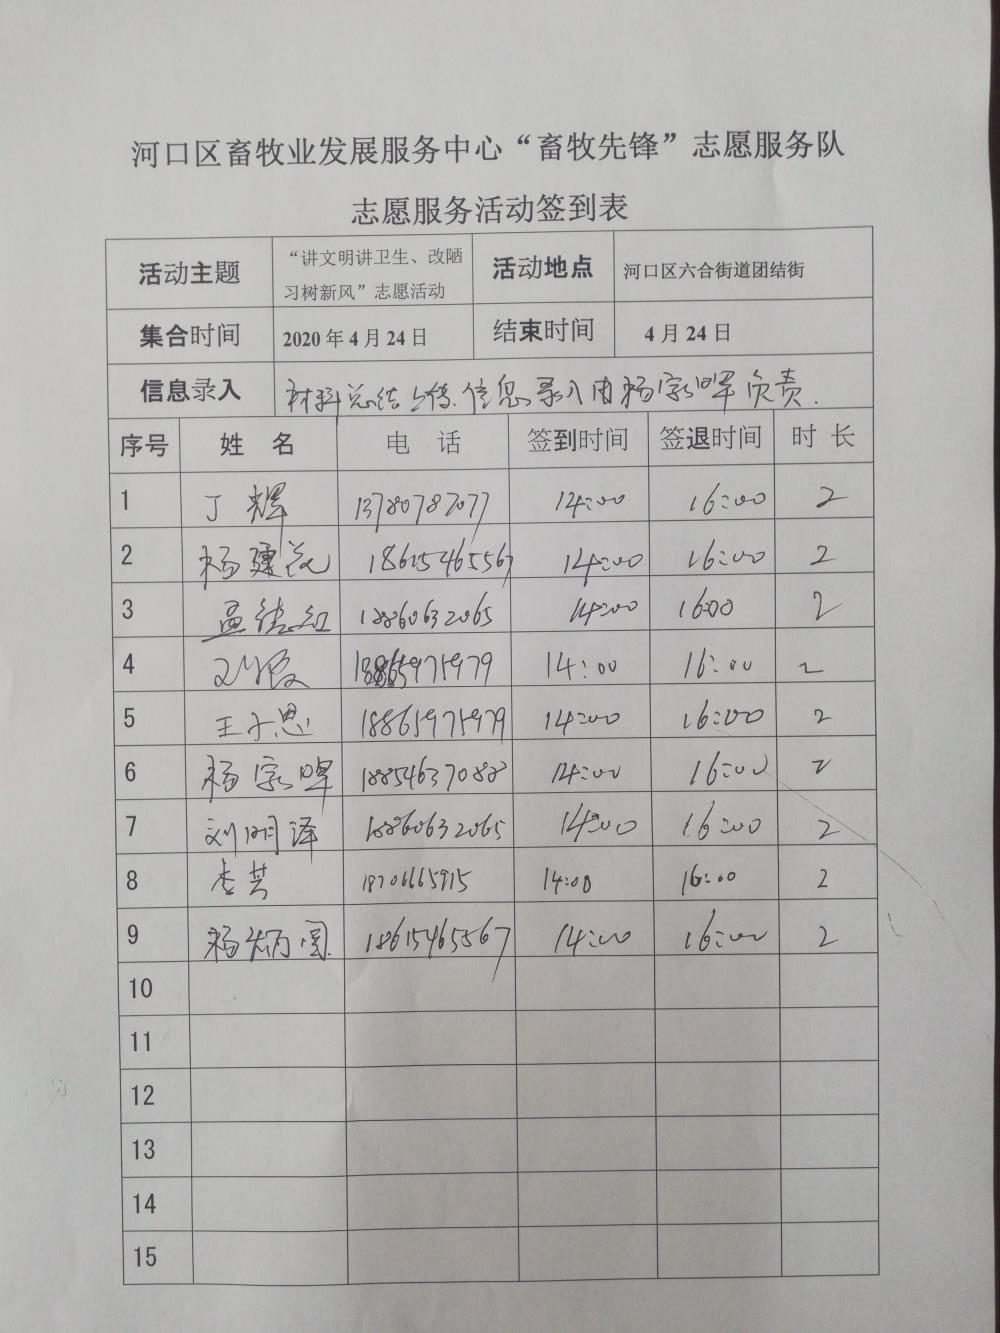 河口区畜牧业发展服务中心“畜牧先锋”志愿服务队
志愿服务活动签到表
活动主题 “讲文明讲卫生、改陋习树新风”志愿活动 活动地点 河口区六合街道团结街
集合时间 2020年4月24日 结束时间 4月24日
信息录入 材料总结上传.信息录入由杨家晖负责.
序号 姓 名 电 话 签到时间 签退时间 时 长
1 丁辉 13780787077 14:00 16:00 2
2 杨建花 18615465567 14:00 16:00 2
3 孟 红 18860632065 14:00 16:00 2
4 18865975979 14:00 16:00 2
5 王子恩 18865975979 14:00 16:00 2
6 杨家晖 14:00 16:00 2
7 刘明泽 18860632065 14:00 16:00 2
8 李芸 18706665915 14:00 16:00 2
9 杨炳国 18615465567 14:00 16:00 2
10
11
12
13
14
15